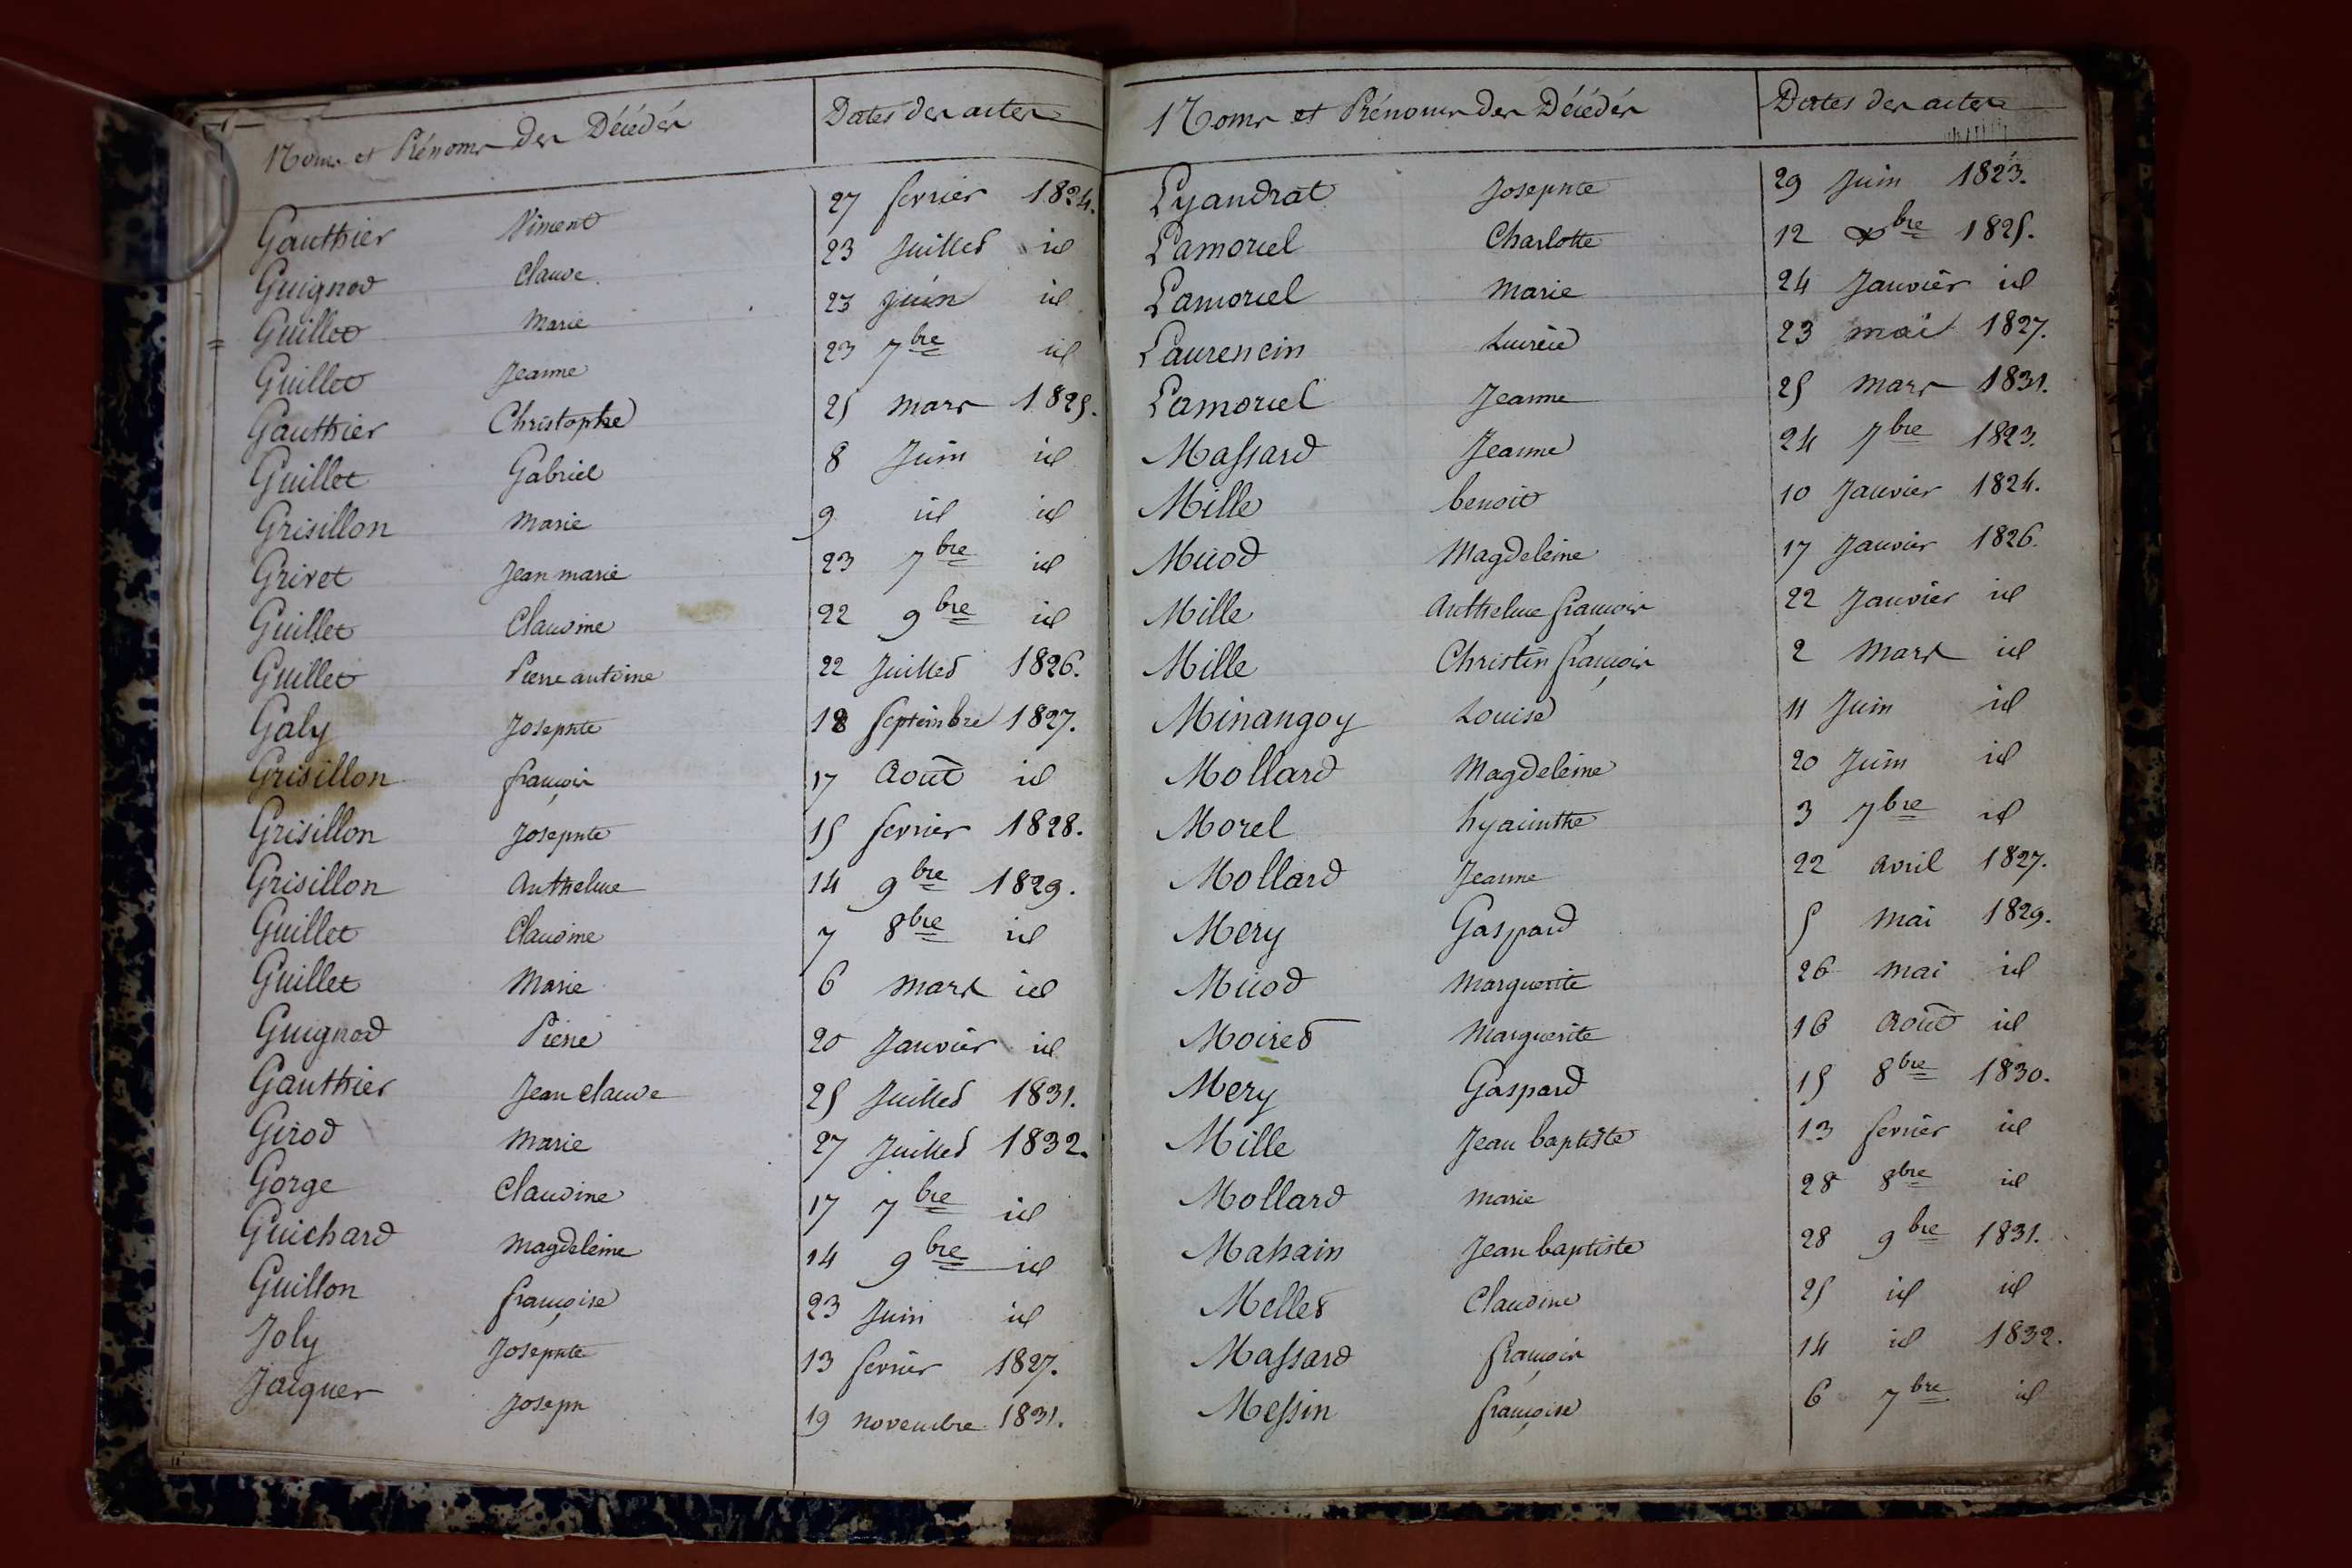 Noms et Prénoms des Décédés Dates des actes
Gauthier Vincent 27 fevrier 1824.
Guignod Claude 23 Juillet id
= Guillet Marie 23 juin id
Guillet Jeanne 23 7bre id
Gauthier Christophe 25 mars 1825.
Guillet Gabriel 8 Juin id
Grisillon Marie 9 id id
Grivet Jean marie 23 7bre id
Guillet Claudine 22 9bre id
Guillet Pierre antoine 22 Juillet 1826.
Galy Josephte 18 Septembre 1827.
Grisillon françois 17 Août id
Grisillon Josephte 15 fevrier 1828.
Grisillon Anthelme 14 9bre 1829.
Guillet Claudine 7 8bre id
Guillet Marie 6 Mars id
Guignod Pierre 20 Janvier id
Gauthier Jean claude 25 Juillet 1831.
Girod Marie 27 Juillet 1832.
Gorge Claudine 17 7bre id
Guichard Magdeleine 14 9bre id
Guillon françoise 23 Juin id
Joly Josephte 13 fevrier 1827.
Jacquer Joseph 19 novembre 1831.
Noms et Prénoms des Décédés Dates des actes
Lyandrat Josephte 29 Juin 1823.
Lamoriel Charlotte 12 Xbre 1825.
Lamoriel Marie 24 Janvier id
Laurencin Lucrèce 23 mai 1827.
Lamoriel Jeanne 25 mars 1831.
Massard Jeanne 24 7bre 1823.
Mille benoit 10 Janvier 1824.
Micod Magdeleine 17 Janvier 1826.
Mille Anthelme françois 22 Janvier id
Mille Christin françois 2 Mars id
Minangoy Louise 11 Juin id
Mollard Magdeleine 20 Juin id
Morel hyacinthe 3 7bre id
Mollard Jeanne 22 avril 1827.
Mery Gaspard 5 Mai 1829.
Micod Marguerite 26 mai id
Moiret Marguerite 16 Août id
Mery Gaspard 15 8bre 1830.
Mille Jean baptiste 13 fevrier id
Mollard Marie 28 8bre id
Mahain Jean baptiste 28 9bre 1831.
Mellet Claudine 25 id id
Massard françois 14 id 1832.
Messin françoise 6 7bre id